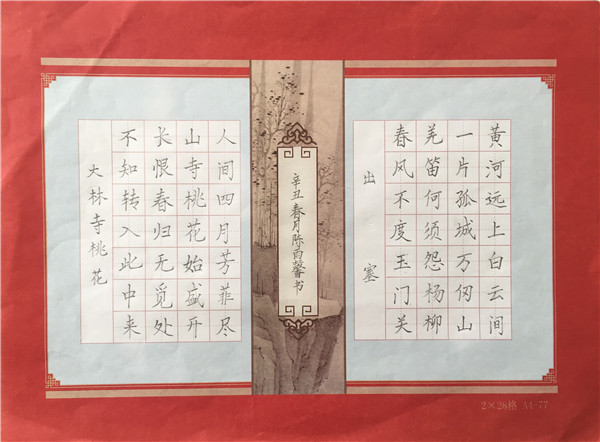 黄河远上白云间
一片孤城万仞山
羌笛何须怨杨柳
春风不度玉门关
出塞
辛丑春月陈雨馨书
人间四月芳菲尽
山寺桃花始盛开
长恨春归无觅处
不知转入此中来
大林寺桃花
2×28格 A4-77